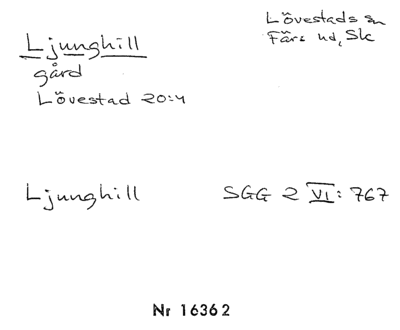 Ljunghill
gård
Lövestad 20:4
Lövestads sn
Färs hd, Sk
Ljunghill
SGG 2 VI: 767
Nr 16362